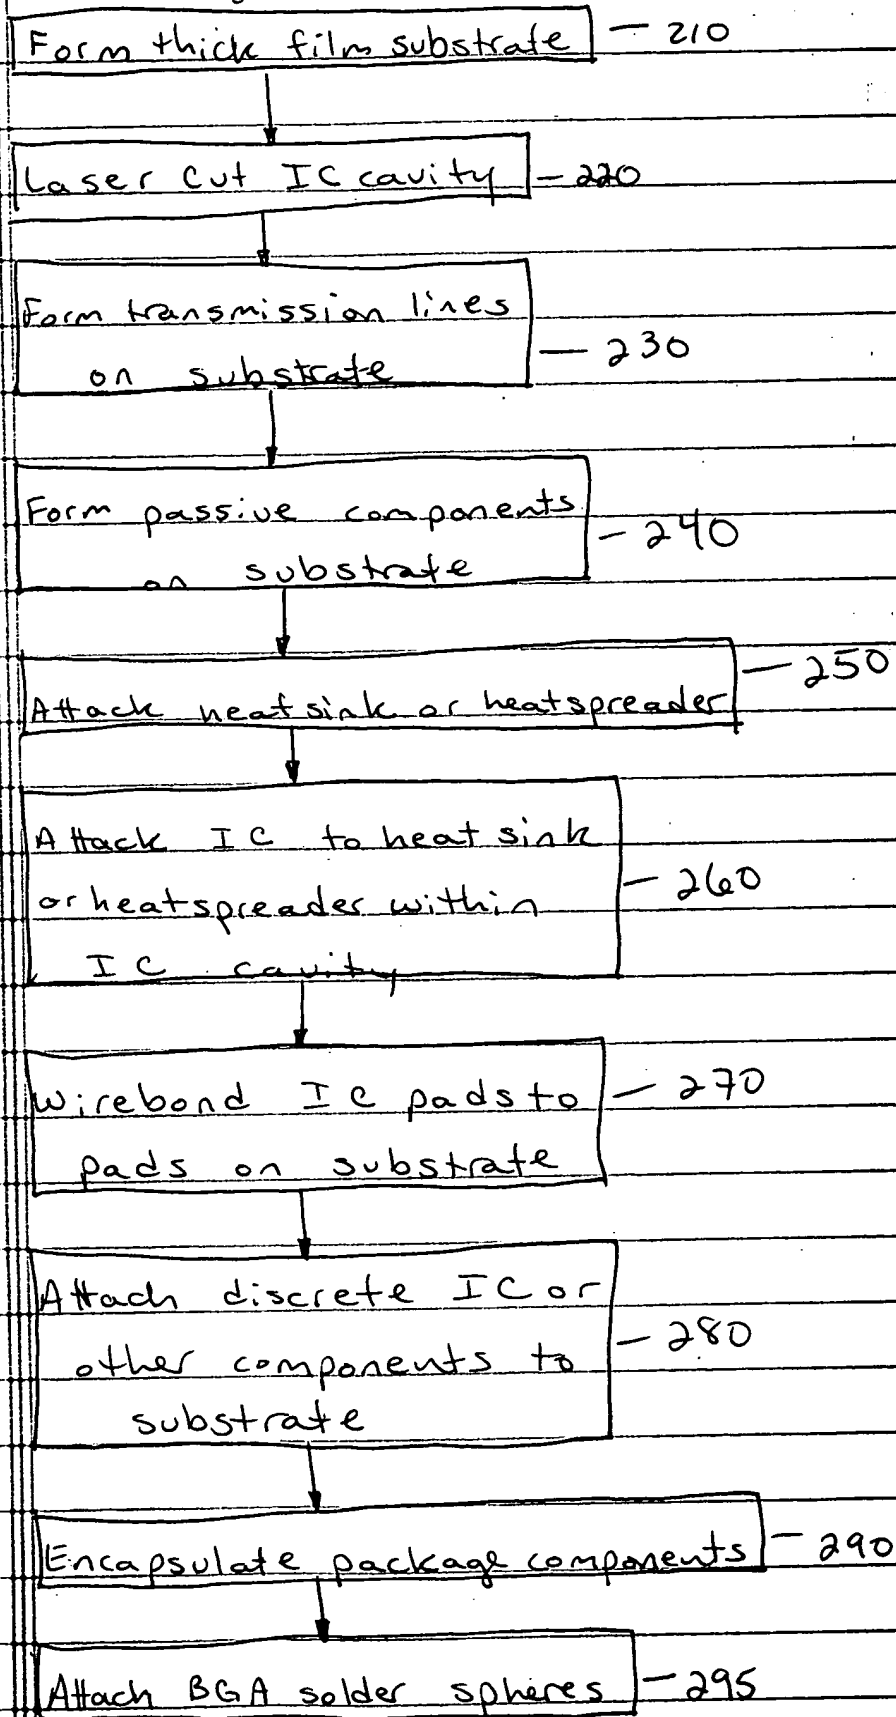 Form thick film substrate — 210
Laser cut IC cavity — 220
Form transmission lines
on substrate
— 230
Form passive components
on substrate
— 240
— 250
Attack heatsink or heatspreader
Attack IC to heat sink
or heatspreader within
IC cavity
— 260
Wirebond IC pads to
pads on substrate
— 270
Attach discrete IC or
other components to
substrate
— 280
Encapsulate package components — 290
Attach BGA solder spheres — 295